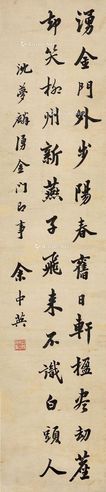 湧金門外步陽春舊日軒楹盡劫塵
却笑柳州新燕子飛來不識白頭人
沈夢麟湧金门即事
余中英